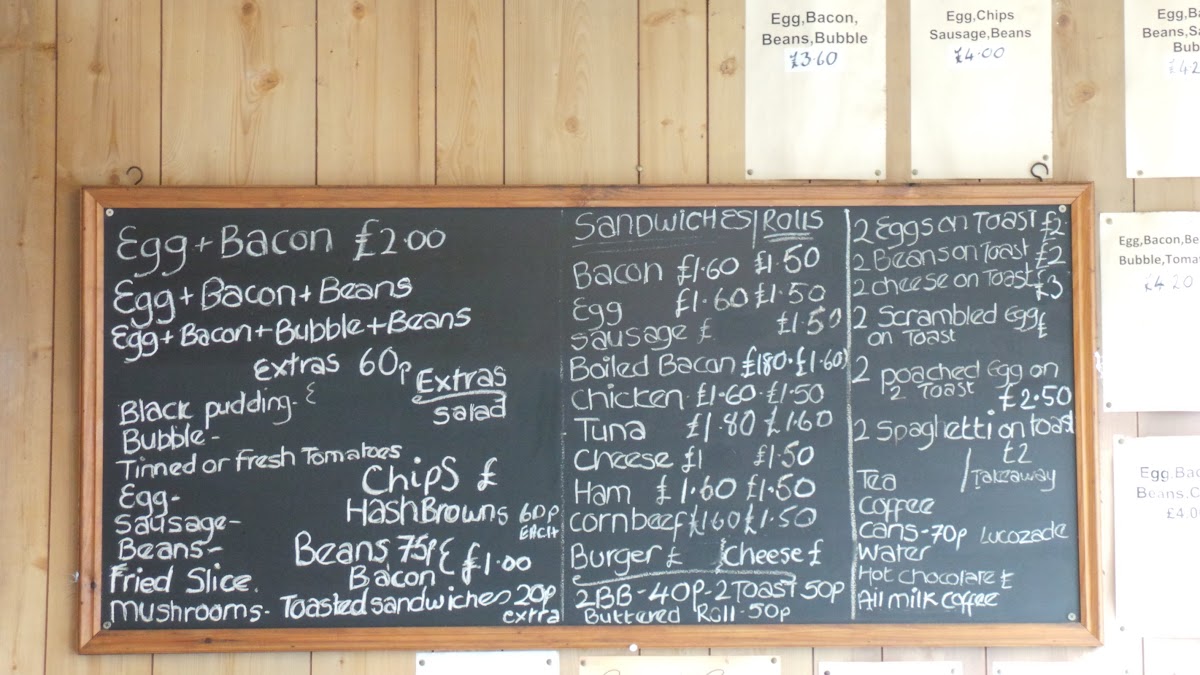 Egg,Bacon,
Beans,Bubble
£3.60
Egg,Chips
Sausage,Beans
£4.00
Egg,Ba
Beans,Sa
Bub
£4.2
Egg,Bacon,Be
Bubble,Toma
£4.20
Egg,Bac
Beans,C
£4.0
Egg + Bacon £2.00
Egg + Bacon + Beans
Egg + Bacon + Bubble + Beans
Extras 60p
Extras
Salad
Black pudding- £
Bubble-
Tinned or Fresh Tomatoes
Chips £
Egg-
Hash Browns 60p
EACH
Sausage-
Beans-
Beans 75p £
Bacon £1.00
Fried Slice.
Mushrooms- Toasted sandwiches 20p
extra
SANDWICHES/ROLLS
Bacon £1.60 £1.50
Egg £1.60 £1.50
Sausage £ £1.50
Boiled Bacon £180.£1.60)
Chicken £1.60. £1.50
Tuna £1.80 £1.60
Cheese £1 £1.50
Ham £1.60 £1.50
cornbeef £160 £1.50
Burger £ Cheese £
2BB-40P-2 Toast 50p
Buttered Roll.50p
2 Eggs on Toast £2
2 Beans on Toast £2
2 cheese on Toast £3
2 Scrambled Egg £
on Toast
2 poached Egg on
2 Toast £2.50
2 Spaghetti on toast
£2
Tea / Takeaway
Coffee
Cans-70p Lucozade
Water
Hot Chocolate £
All milk coffee